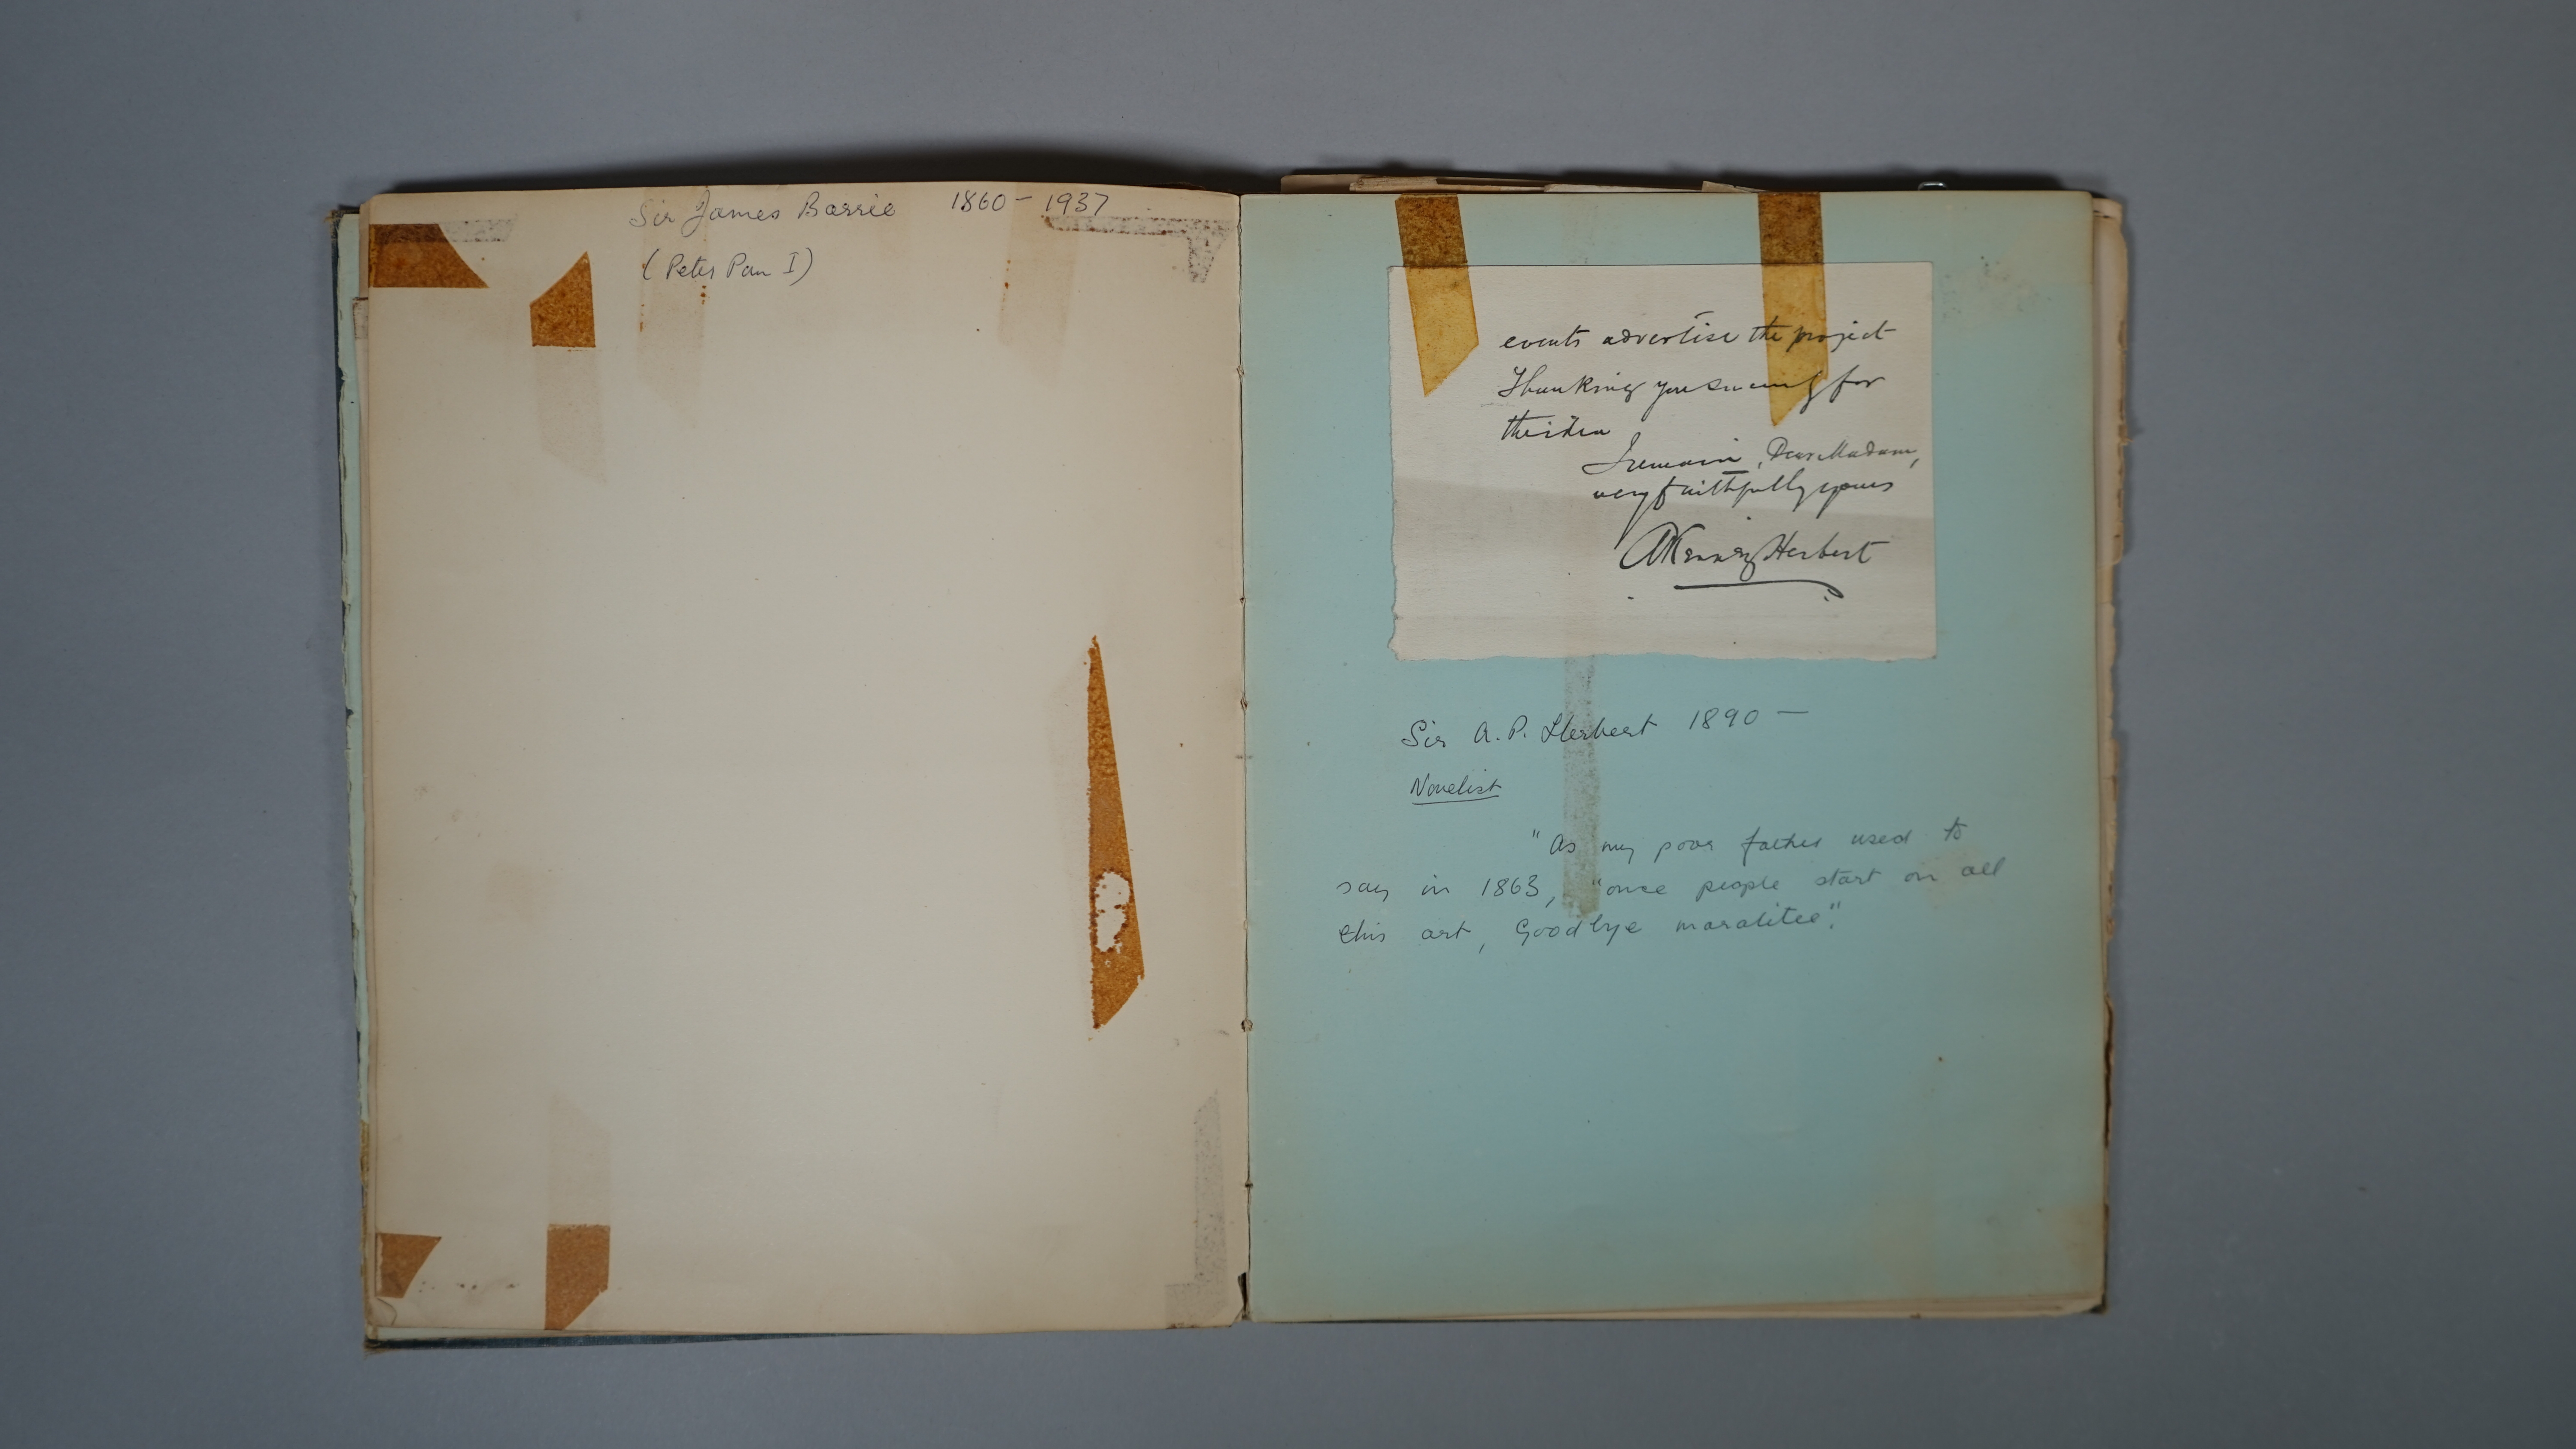 Sir James Barrie 1860 - 1937
(Peter Pan I)
events advertise the project
Thanking you sincerely for
the idea
I remain, Dear Madam,
very faithfully yours
A Kenney Herbert
Sir A. P. Herbert 1890 —
Novelist
"As my poor father used to
say in 1863, "once people start on all
this art, Goodbye moralitee".